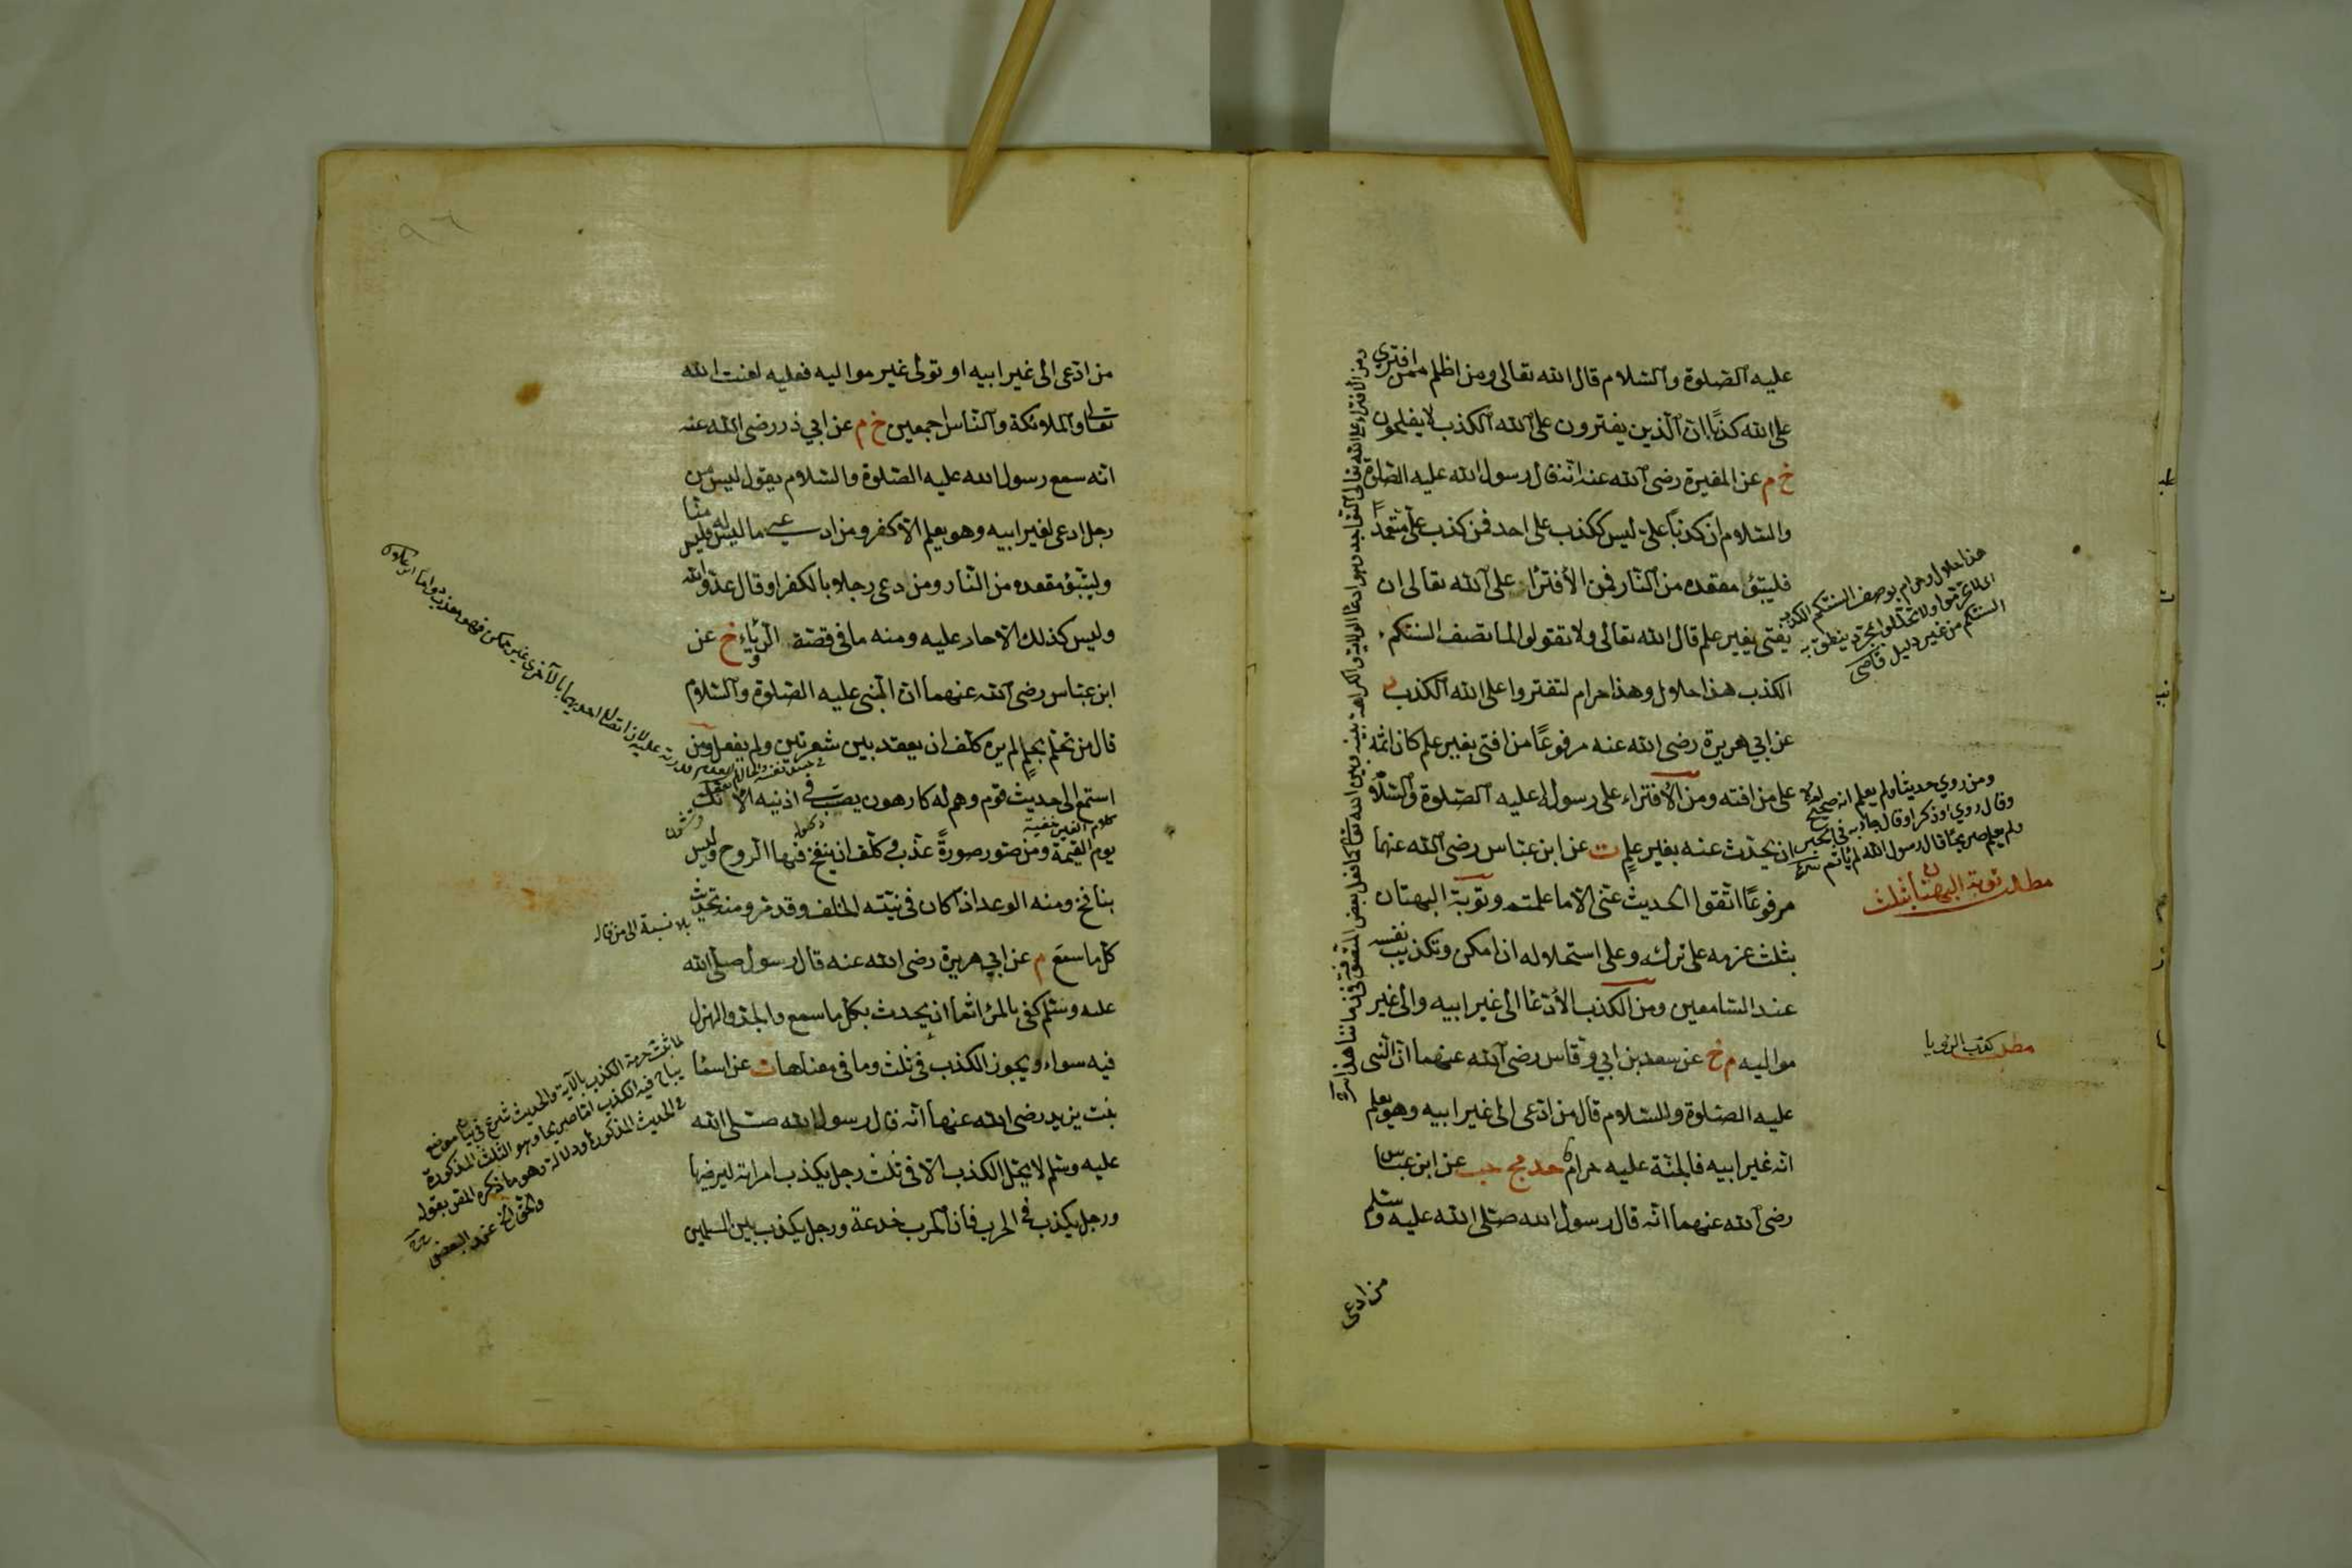 عليه الصلوة والسلام قال الله تعالى ومن اظلم ممن افترى
على الله كذبًا ان الذين يفترون على الله الكذب لا يفلحون
خ م عن المغيرة رضى الله عنه انه قال رسول الله عليه الصلوة
والسلام ان كذبًا علىّ ليس ككذب على احد فمن كذب علىّ متعمدًا
فليتبؤ مقعده من النار فمن الأفتراء على الله تعالى ان
يفتى بغير علم قال الله تعالى ولا تقولوا لما تصف السنتكم
الكذب هذا حلال وهذا حرام لتفتروا على الله الكذب د
عن ابي هريرة رضى الله عنه مرفوعًا من افتى بغير علم كان اثمه
على من افته ومن الأفتراء على رسول الله عليه الصلوة والسلام
ان يحدث عنه بغير علم ت عن ابن عباس رضى الله عنهما
مرفوعًا اتقوا الحديث عنى الا ما علمتم وتوبة البهتان
بثلث عزمه على تركه وعلى استحلاله ان امكن وتكذيب نفسه
عند السامعين ومن الكذب الأدعا الى غير ابيه والى غير
مواليه م خ عن سعد بن ابي وقاس رضى الله عنهما ان النبى
عليه الصلوة والسلام قال من ادعى الى غير ابيه وهو يعلم
انه غير ابيه فالجنة عليه حرام حد مج حب عن ابن عباس
رضى الله عنهما انه قال رسول الله صلى الله عليه وسلم
من ادعى
هذا حلال وحرام بوصف السنتكم الكذب
السنتكم من غير دليل قاضى
ومن روي حديثا ولم يعلم انه صحيح
ولم يعلم صريحًا قال رسول الله لم يأثم
مطلب توبة البهتان بثلث
مطلب كذب الرؤيا
من ادعى الى غير ابيه او تولى غير مواليه فعليه لعنت الله
تعالى والملائكة والناس اجمعين خ م عن ابي ذر رضى الله عنه
انه سمع رسول الله عليه الصلوة والسلام يقول ليس من
رجل ادعى لغير ابيه وهو يعلم الا كفر ومن ادعى ما ليس له فليس منا
وليتبؤ مقعده من النار ومن دعى رجلا بالكفر او قال عدو الله
وليس كذلك الا حار عليه ومنه ما في قصة الرؤياء خ عن
ابن عباس رضى الله عنهما ان النبى عليه الصلوة والسلام
قال من تحلم بحلم لم يره كلف ان يعقد بين شعرتين ولم يفعل ومن
استمع الى حديث قوم وهم له كارهون يصب في اذنيه الآنك
يوم القيمة ومن صور صورةً عذب وكلف ان ينفخ فيها الروح وليس
بنافخ ومنه الوعد اذا كان في نيته الخلف وقد مر ومنه تحديث
كل ما سمع م عن ابي هريرة رضى الله عنه قال رسول صلى الله
عليه وسلم كفى بالمرأ اثما ان يحدث بكل ما سمع والجد والهزل
فيه سواء ويجوز الكذب في ثلث وما في معناها ت عن اسما
بنت يزيد رضى الله عنها انه قال رسول الله صلى الله
عليه وسلم لا يحل الكذب الا في ثلث رجل يكذب امراته ليرضيها
ورجل يكذب في الحرب فان الحرب خدعة ورجل يكذب بين المسلمين
بلا نسبة الى من قاله
لما ثبت حرمة الكذب بالآية والحديث شرع في بيان مواضع
يباح فيه الكذب اما صريحا وهو الثلث المذكورة
في الحديث المذكور او دلالة وهو ما ذكره المص بقوله